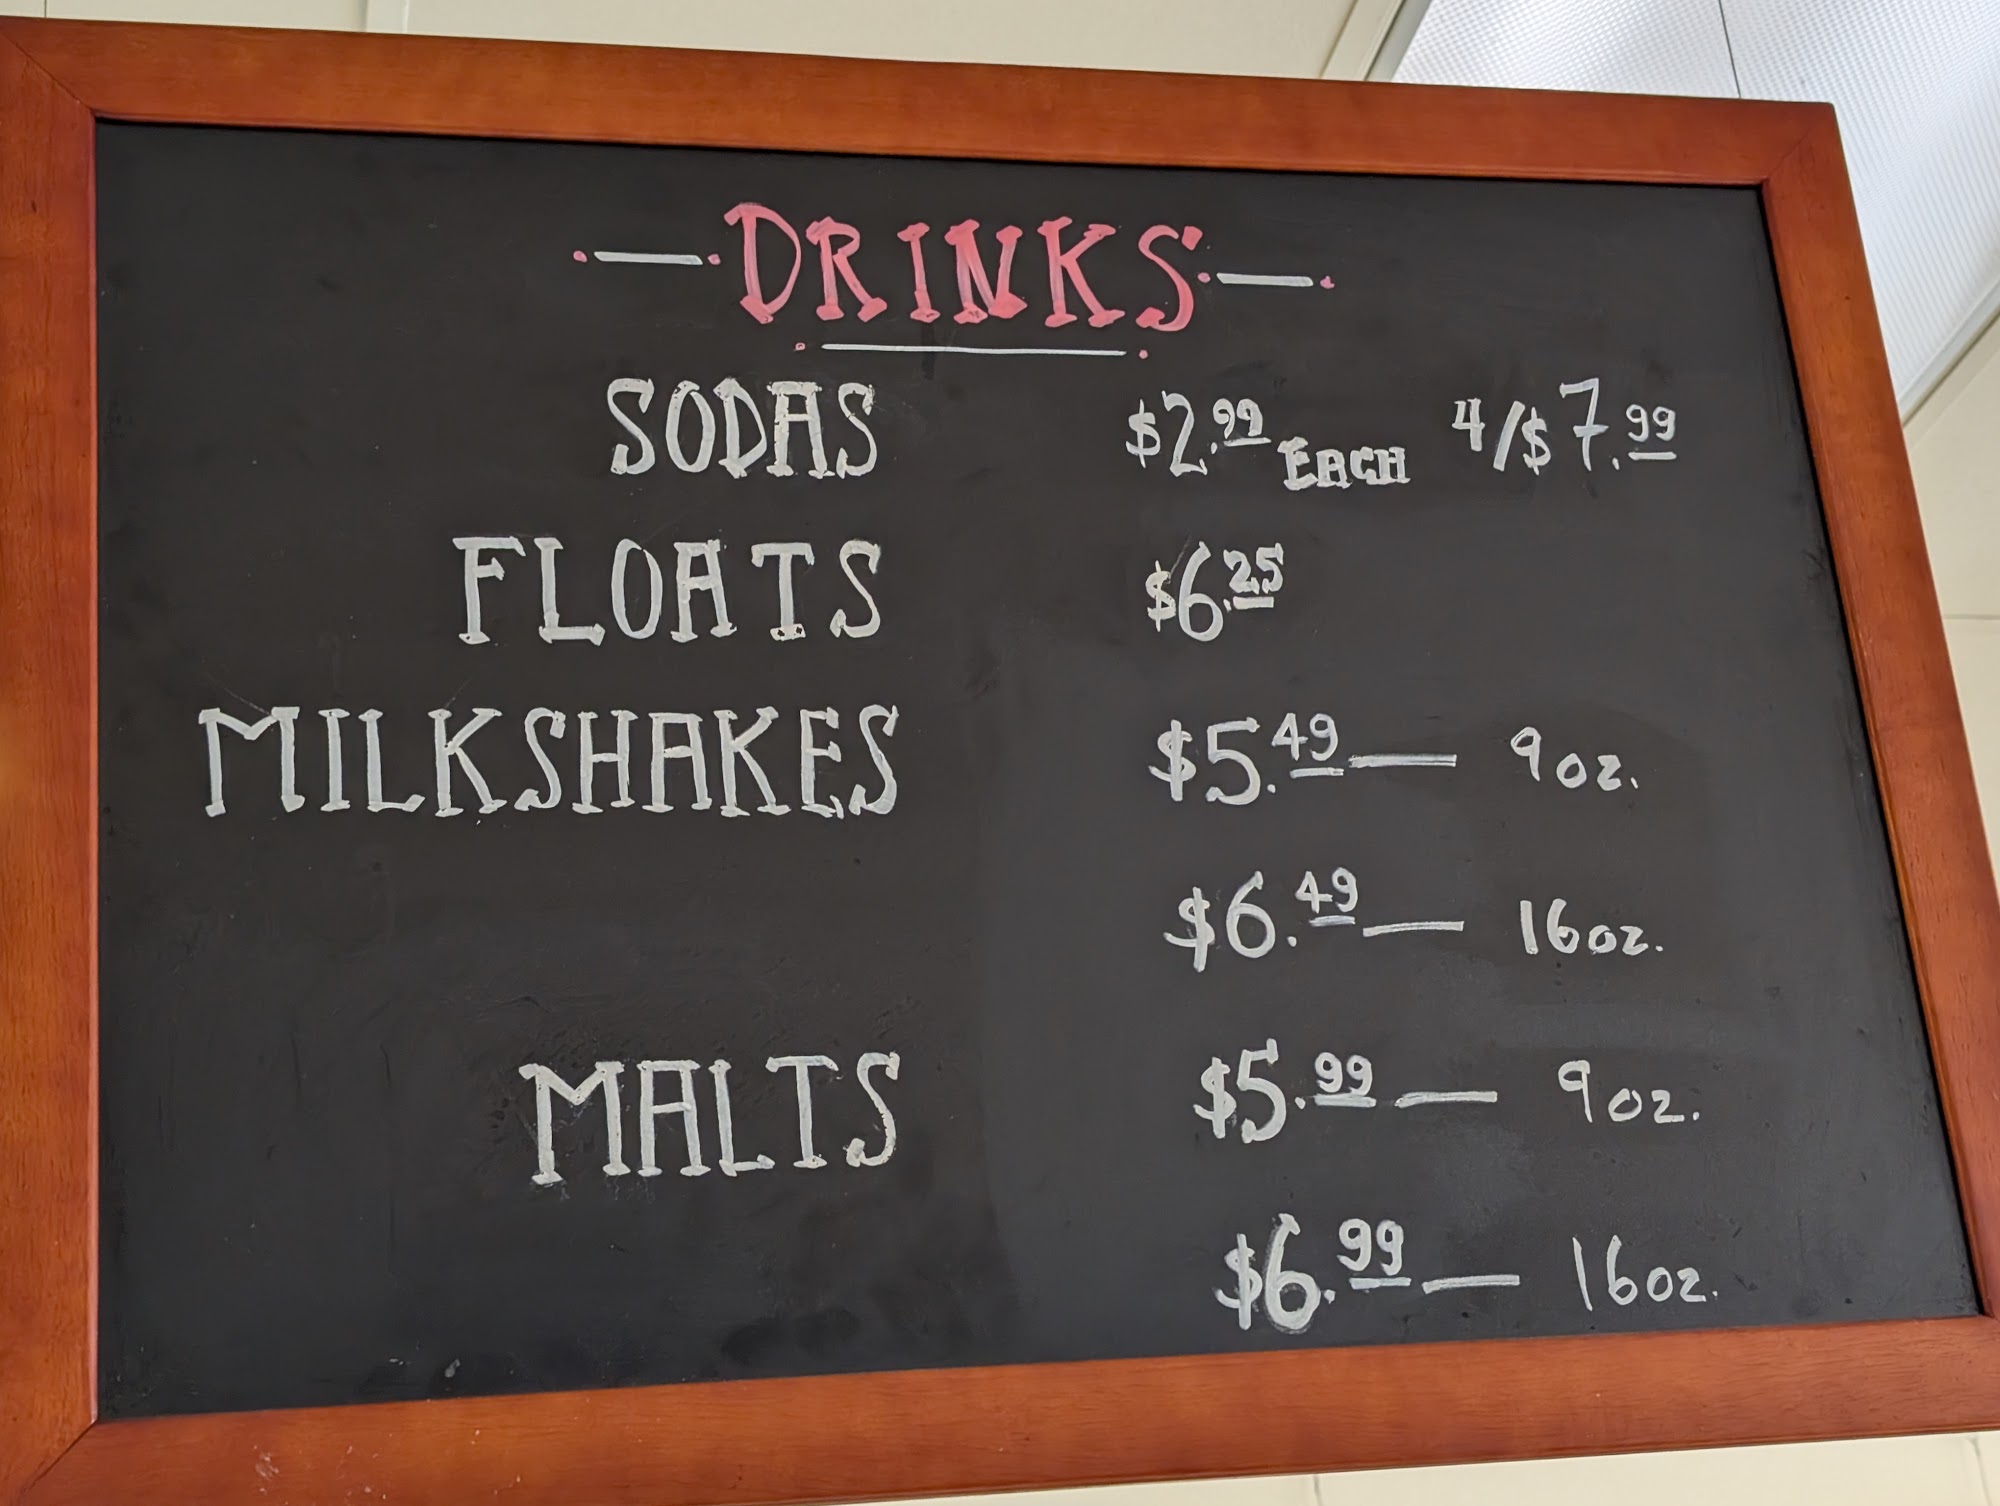 DRINKS
SODAS $2.99 EACH 4/$7.99
FLOATS $6.25
MILKSHAKES $5.49 — 9oz.
$6.49 — 16oz.
MALTS $5.99 — 9oz.
$6.99 — 16oz.